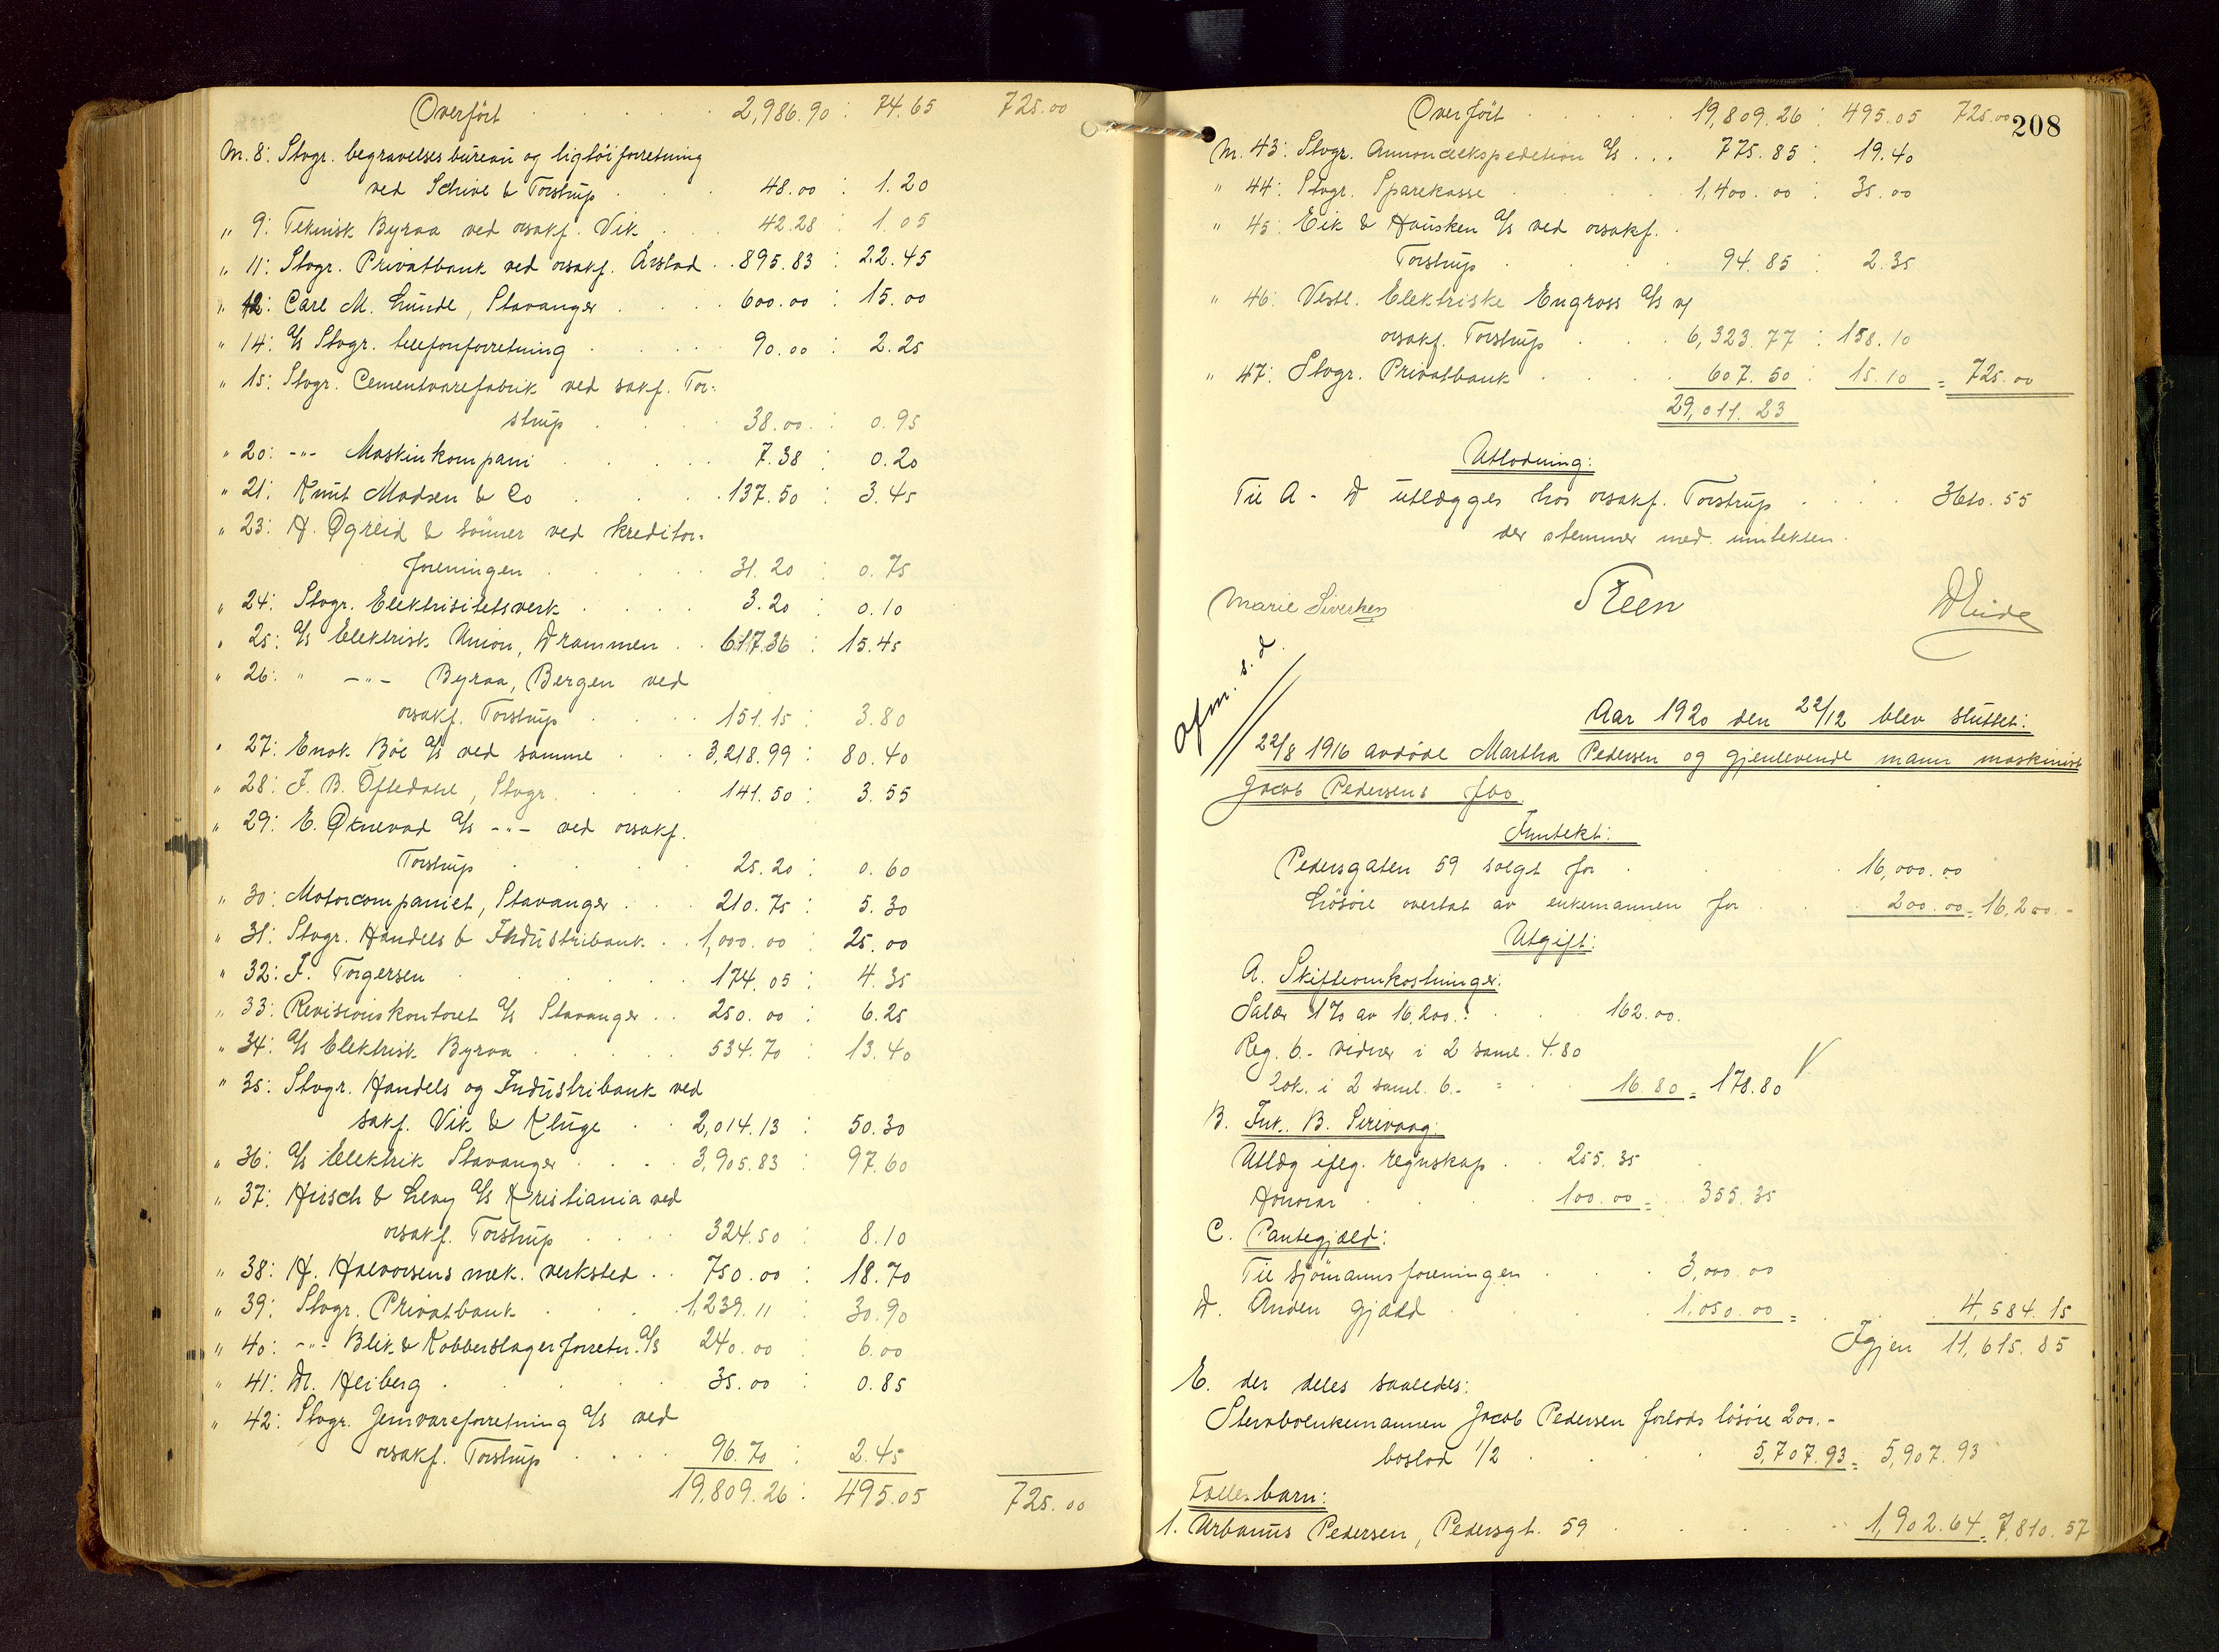 Overført . . . . . 2,986.90 : 74.65 725.00
M. 8: Stvgr. begravelsesbureau og ligtöiforretning
ved Schive & Torstrup . . . 48.00 : 1.20
" 9: Teknisk Byraa ved orsakf. Vik . . 42.28 : 1.05
" 11: Stvgr. Privatbank ved orsakf. Årstad . . 895.83 : 22.45
" 12: Carl M. Lunde, Stavanger . . . 600.00 : 15.00
" 14: A/S Stvgr. telefonforretning . . . . 90.00 : 2.25
" 15: Stvgr. Cementvarefabrik ved sakf. Tor-
strup . . . . 38.00 : 0.95
" 20: -"- Maskinkompani . . . . . 7.38 : 0.20
" 21: Knut Madsen & Co . . . . 137.50 : 3.45
" 23: H. Øgreid & sönner ved kreditor-
foreningen . . . . . 31.20 : 0.75
" 24: Stvgr. Elektrisitetsverk . . . . 3.20 : 0.10
" 25: A/S Elektrisk Union, Drammen . . 617.36 : 15.45
" 26: " -"- Byraa, Bergen ved
orsakf. Torstrup . . . . 151.15 : 3.80
" 27: Enok Böe A/S ved samme . . . 3,218.99 : 80.40
" 28: J. B. Oftedahl, Stvgr. . . . . 141.50 : 3.55
" 29: E. Øknevad A/S -"- ved orsakf.
Torstrup . . . . . 25.20 : 0.60
" 30: Motorcompaniet, Stavanger . . . 210.75 : 5.30
" 31: Stvgr. Handels & Industribank . . 1,000.00 : 25.00
" 32: J. Torgersen . . . . . 174.05 : 4.35
" 33: Revisionskontoret A/S Stavanger . . 250.00 : 6.25
" 34: A/S Elektrisk Byraa . . . . . 534.70 : 13.40
" 35: Stvgr. Handels og Industribank ved
sakf. Vik & Kluge . . 2,014.13 : 50.30
" 36: A/S Elektrik Stavanger . . . . 3,905.83 : 97.60
" 37: Hirsch & Levy A/S Kristiania ved
orsakf. Torstrup . . . . 324.50 : 8.10
" 38: H. Halvorsens mek. verksted . . 750.00 : 18.70
" 39: Stvgr. Privatbank . . . . 1,239.11 : 30.90
" 40: -"- Blik & Kobberslagerforretn. A/S 240.00 : 6.00
" 41: Dr. Heiberg . . . . . 35.00 : 0.85
" 42: Stvgr. Jernvareforretning A/S ved
orsakf. Torstrup . . . . 96.70 : 2.45
19,809.26 : 495.05 725.00
208
Overført . . . . . 19,809.26 : 495.05 725.00
M. 43: Stvgr. Annoncekspedition A/S . . . 775.85 : 19.40
" 44: Stvgr. Sparekasse . . . . 1,400.00 : 35.00
" 45: Eik & Hausken A/S ved orsakf. .
Torstrup . . . . 94.85 : 2.35
" 46: Vestl. Elektriske Engross A/S v/
orsakf. Torstrup . . . 6,323.77 : 158.10
" 47: Stvgr. Privatbank . . . . 607.50 : 15.10 = 725.00
29,011.23
Utlodning:
Til A - D utlægges hos orsakf. Torstrup . . . .
der stemmer med inntekten.
Marie Siverksen Steen
Ofm. s. d.
Aar 1920 den 22/12 blev sluttet:
22/8 1916 avdöde Martha Pedersen og gjenlevende mann maskinist
Jacob Pedersens fbo.
Inntekt:
Pedersgaten 59 solgt for . . . . 16,000.00
Lösöre overtat av enkemannen for . . 200.00 = 16,200.-
Utgift:
A. Skifteomkostninger:
Salær 1% av 16,200.: . . 162.00.
Reg. 6.- vidner i 2 saml. 4.80
lok. i 2 saml. 6.- = . . 16.80 = 178.80
B. Ink. B. Sirevaag:
Utlæg iflg. regnskap . . 255.35
Honorar . . . 100.00 = . . 355.35
C. Pantegjæld:
Til sjömannsforeningen . . . 3,000.00
D. Anden gjæld . . . . 1,050.00 = . . 4,584.15
Igjen 11,615.85
E. der deles saaledes:
Stervboenkemannen Jacob Pedersen forlods lösöre 200.-
boslod 1/2 . . . . 5,707.93 = 5,907.93
Fællesbarn:
1. Urbanus Pedersen, Pedersgt. 59 . . . . . 1,902.64 = 7,810.57